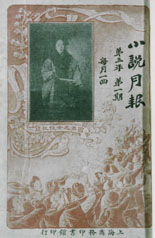 小說月報
第五年 第一期
每月一回
上海商務印書館印行